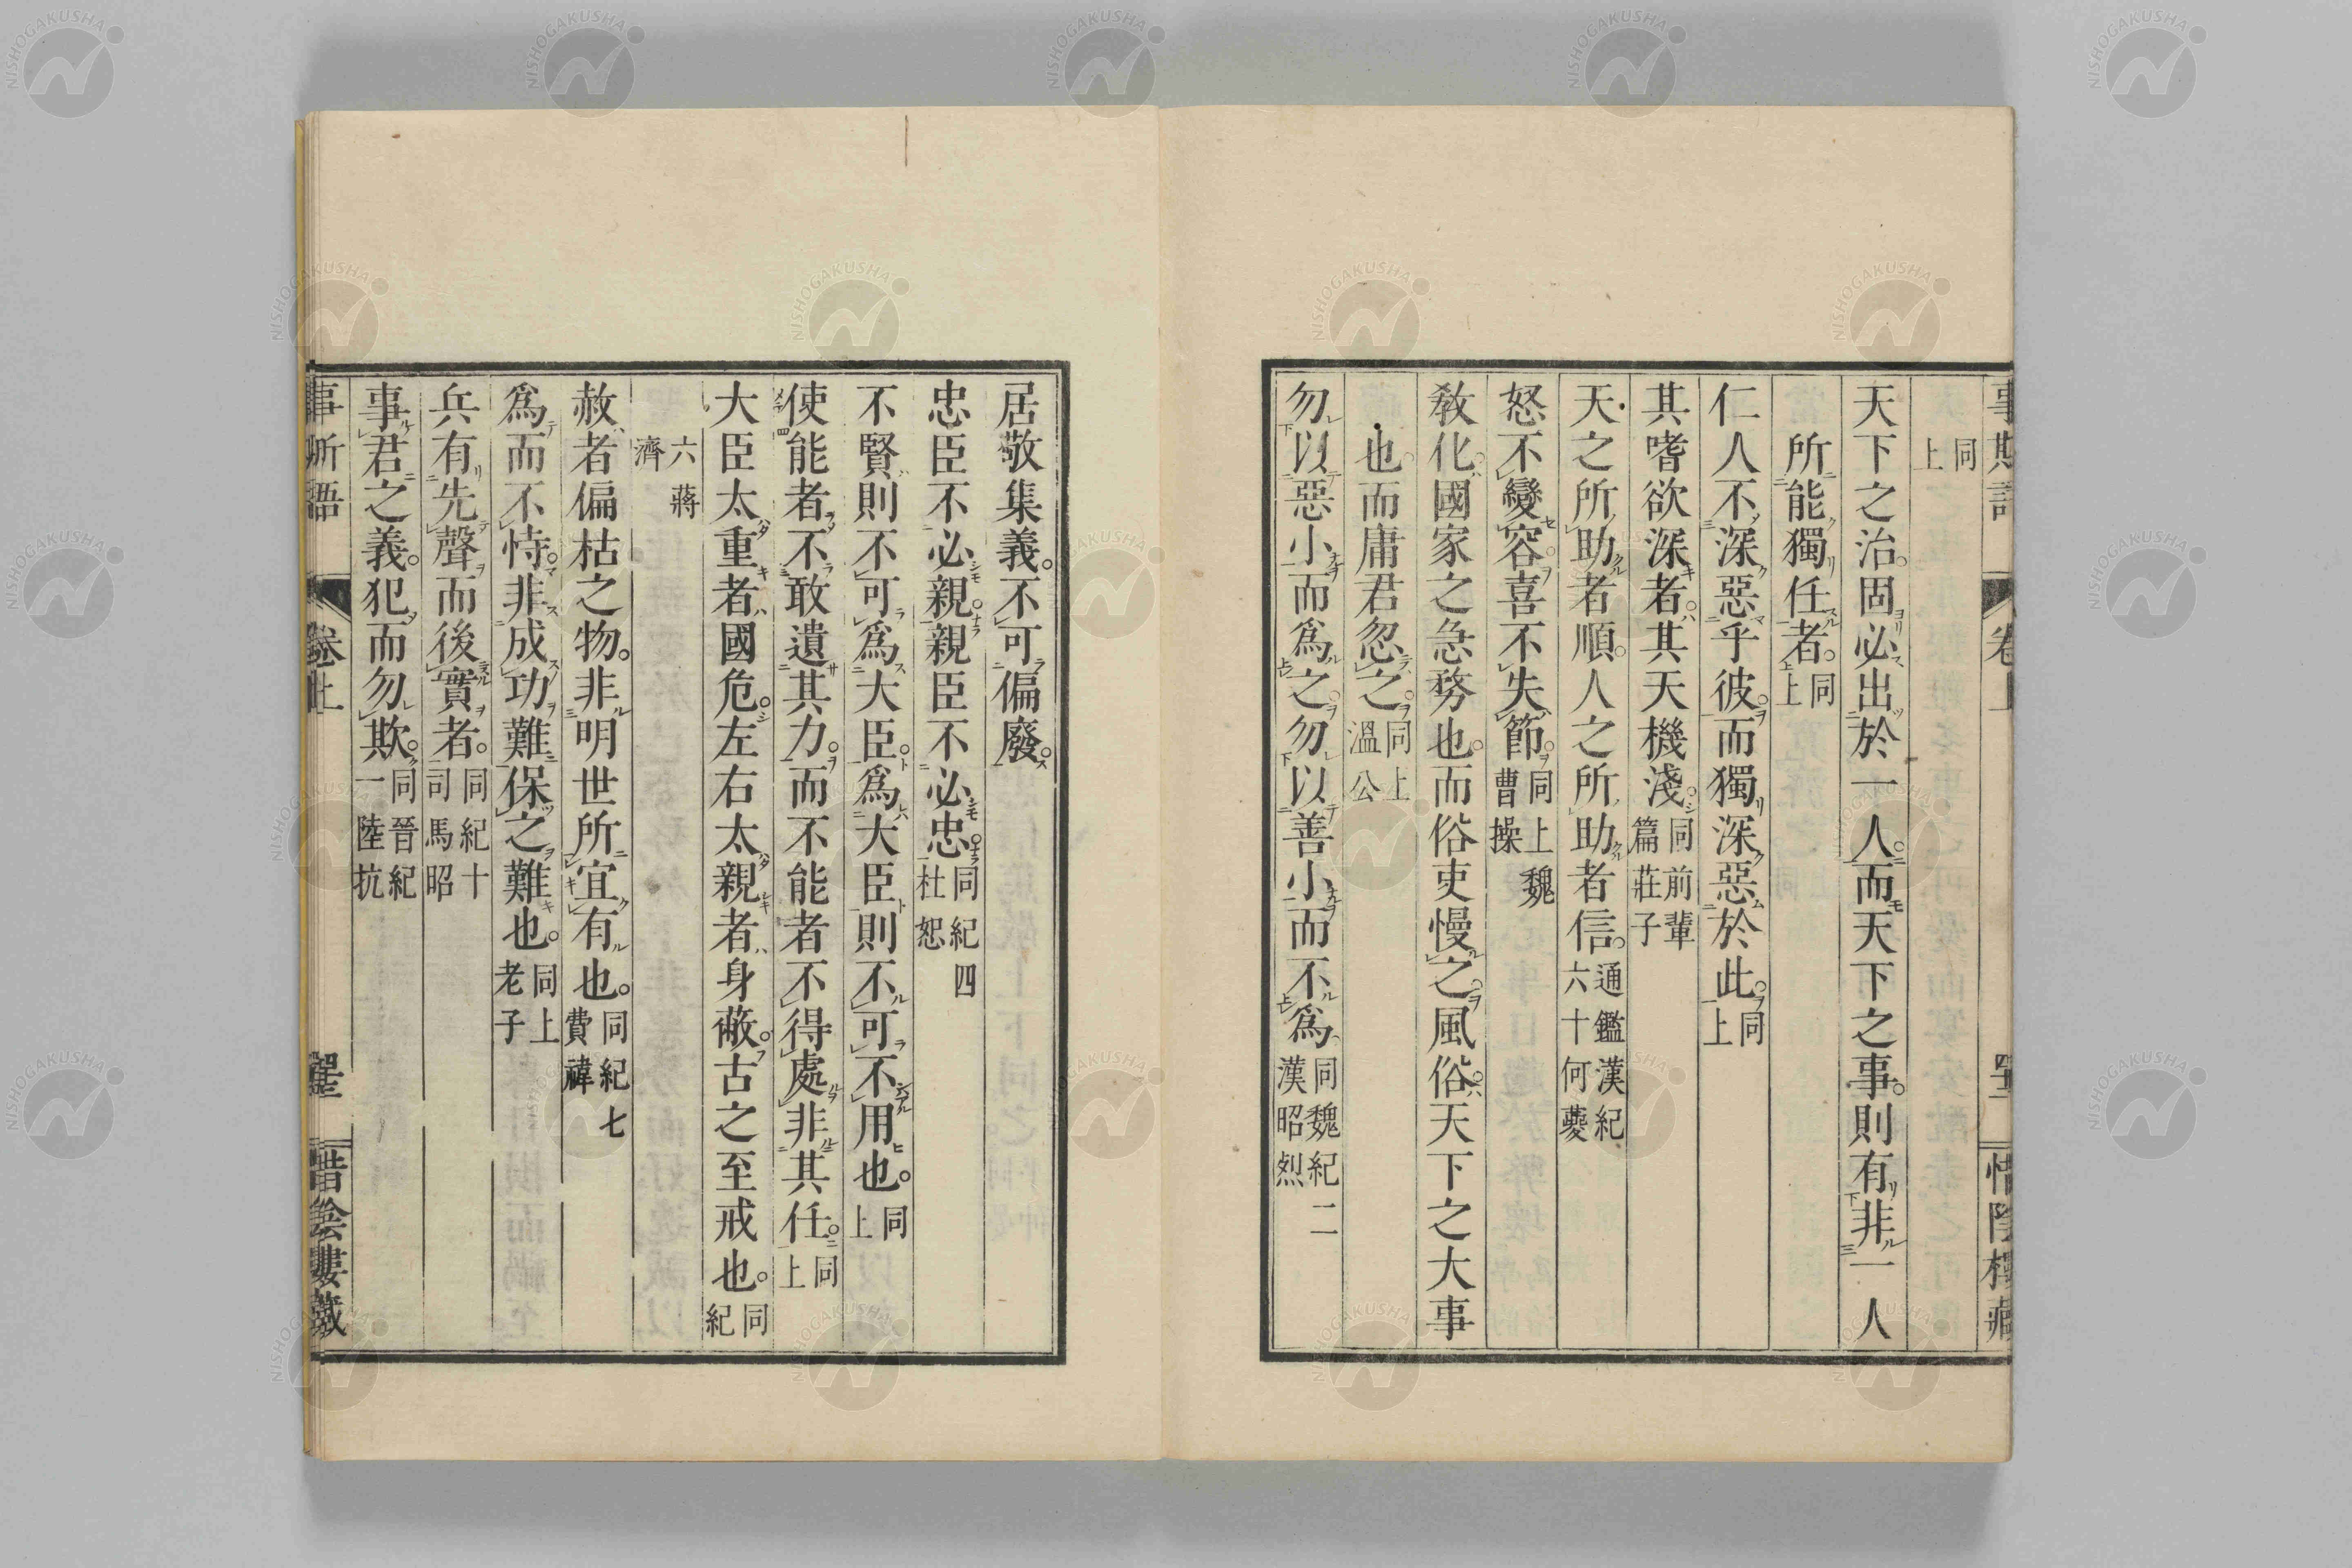 同上
天下之治固必出於一人而天下之事則有非一人
所能獨任者同上
仁人不深惡乎彼而獨深惡於此同上
其嗜欲深者其天機淺同前輩篇莊子
天之所助者順人之所助者信通鑑漢紀六十何夔
怒不變容喜不失節同上魏曹操
敎化國家之急務也而俗吏慢之風俗天下之大事
也而庸君忽之同上溫公
勿以惡小而爲之勿以善小而不爲同魏紀二漢昭烈
居敬集義不可偏廢
忠臣不必親親臣不必忠同紀四杜恕
不賢則不可爲大臣爲大臣則不可不用也同上
使能者不敢遺其力而不能者不得處非其任同上
大臣太重者國危左右太親者身蔽古之至戒也同紀
六蔣濟
赦者偏枯之物非明世所宜有也同紀七費禕
爲而不恃非成功難保之難也同上老子
兵有先聲而後實者同紀十司馬昭
事君之義犯而勿欺同晉紀一陸抗
卷上
NISHOGAKUSHA